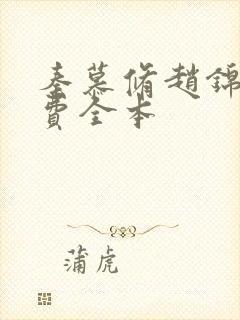 秦慕脩趙錦
費全本
蒲虎